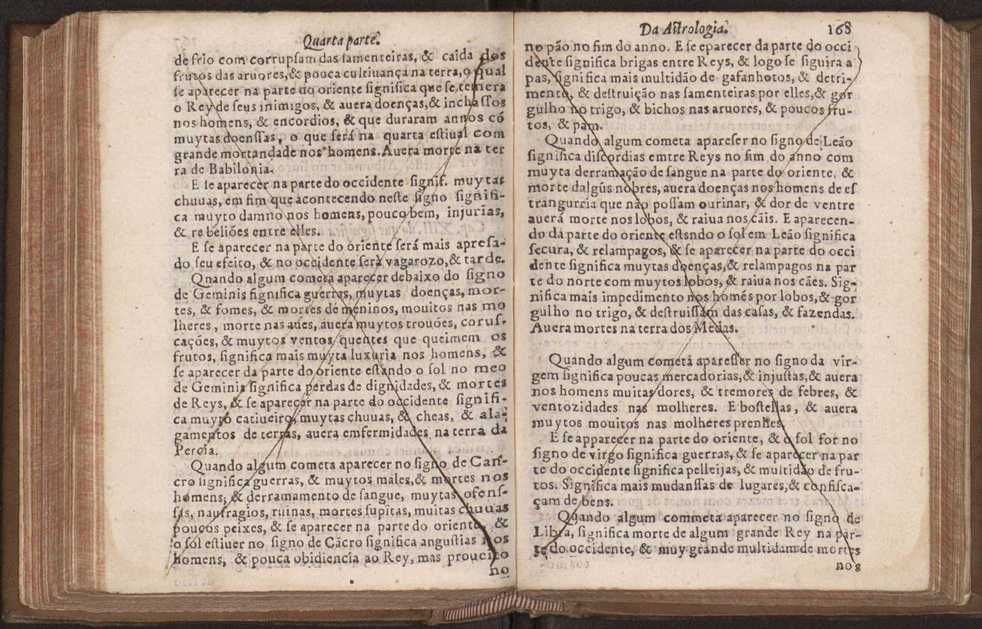 Quarta parte.
de frio com corrupsam das samenteiras, & caida dos
frutos das aruores, & pouca cultiuança na terra, o qual
se aparecer na parte do oriente significa que se temera
o Rey de seus inimigos, & auera doenças, & inchassos
nos homens, & encordios, & que duraram annos cõ
muytas doenssas, o que será na quarta estiual com
grande mortandade nos homens. Auera morte na ter
ra de Babilonia.
E se aparecer na parte do occidente signif. muytas
chuuas, em fim que acontecendo neste signo signifi-
ca muyto damno nos homens, pouco bem, injurias,
& rebeliões entre elles.
E se aparecer na parte do oriente será mais apresa-
do seu efeito, & no occidente será vagarozo, & tarde.
Quando algum cometa aparecer debaixo do signo
de Geminis significa guerras, muytas doenças, mor-
tes, & fomes, & mortes de meninos, mouitos nas mo
lheres, morte nas aues, auera muytos trouões, corus-
cações, & muytos ventos quentes que queimem os
frutos, significa mais muyta luxuria nos homens, &
se aparecer da parte do oriente estando o sol no meo
de Geminis significa perdas de dignidades, & mortes
de Reys, & se aparecer na parte do occidente signifi-
ca muyto catiueiro, muytas chuuas, & cheas, & ala-
gamentos de terras, auera emfermidades na terra da
Percia.
Quando algum cometa aparecer no signo de Can-
cro significa guerras, & muytos males, & mortes nos
homens, & derramamento de sangue, muytas ofens-
sas, naufragios, ruinas, mortes supitas, muitas chuuas
poucos peixes, & se aparecer na parte do oriente, &
o sol estiuer no signo de Cãcro significa angustias nos
homens, & pouca obidiencia ao Rey, mas proueito
no
Da Astrologia. 168
no pão no fim do anno. E se eparecer da parte do occi
dente significa brigas entre Reys, & logo se siguira a
pas, significa mais multidão de gafanhotos, & detri-
mento, & destruição nas samenteiras por elles, & gor
gulho no trigo, & bichos nas aruores, & poucos fru-
tos, & pam.
Quando algum cometa apareser no signo de Leão
significa discordias emtre Reys no fim do anno com
muyta derramação de sangue na parte do oriente, &
morte dalgũs nobres, auera doenças nos homens de es
trangurria que não possam ourinar, & dor de ventre
auerá morte nos lobos, & raiua nos cãis. E aparecen-
do da parte do oriente estando o sol em Leão significa
secura, & relampagos, & se aparecer na parte do occi
dente significa muytas doenças, & relampagos na par
te do norte com muytos lobos, & raiua nos cães. Sig-
nifica mais impedimento nos homẽs por lobos, & gor
gulho no trigo, & destruissam das casas, & fazendas.
Auera mortes na terra dos Medas.
Quando algum cometa aparesser no signo da vir-
gem significa poucas mercadorias, & injustas, & auera
nos homens muitas dores, & tremores de febres, &
ventozidades nas molheres. E bostellas, & auera
muytos mouitos nas molheres prenhes.
E se apparecer na parte do oriente, & o sol for no
signo de virgo significa guerras, & se aparecer na par
te do occidente significa pelleijas, & multidão de fru-
tos. Significa mais mudanssas de lugares, & confisca-
çam de bens.
Quando algum commeta aparecer no signo de
Libra, significa morte de algum grande Rey na par-
te do occidente, & muy grande multidam de mortes
nos